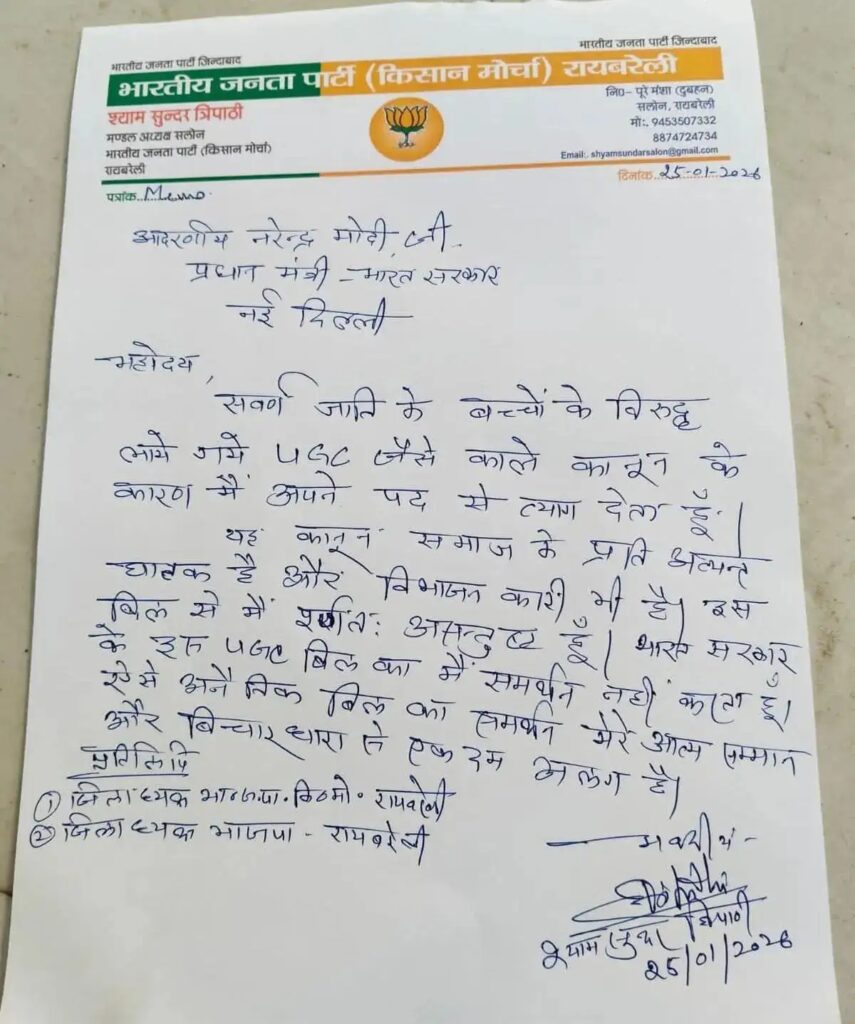 भारतीय जनता पार्टी जिन्दाबाद
भारतीय जनता पार्टी जिन्दाबाद
भारतीय जनता पार्टी (किसान मोर्चा) रायबरेली
श्याम सुन्दर त्रिपाठी
मण्डल अध्यक्ष सलोन
भारतीय जनता पार्टी (किसान मोर्चा)
रायबरेली
नि0- पूरे मंशा (दुबहन)
सलोन, रायबरेली
मो:. 9453507332
8874724734
Email:. shyamsundarsalon@gmail.com
पत्रांक..Memo.
दिनांक..25-01-2026
आदरणीय नरेन्द्र मोदी जी.
प्रधान मंत्री - भारत सरकार
नई दिल्ली
महोदय,
सवर्ण जाति के बच्चों के विरुद्ध
लाये गये UGC जैसे काले कानून के
कारण मैं अपने पद से त्याग देता हूँ।
यह कानून समाज के प्रति अत्यन्त
घातक है और विभाजन कारी भी है। इस
बिल से मैं असन्तुष्ट हूँ। भारत सरकार
के इस UGC बिल का मैं समर्थन नहीं करता हूँ।
ऐसे अनैतिक बिल का समर्थन मेरे आत्म सम्मान
और विचारधारा से एक दम अलग है।
प्रतिलिपि
① जिलाध्यक्ष भाजपा. कि0मो. रायबरेली
② जिलाध्यक्ष भाजपा - रायबरेली
भवदीय -
श्याम सुन्दर त्रिपाठी
25/01/2026